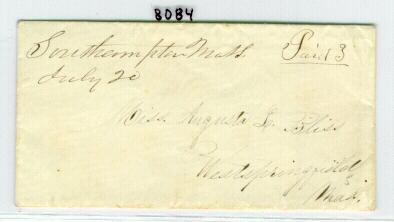 8084
Southampton Mass Paid 3
July 20
Miss Augusta L. Bliss
Westspringfield
Mass.